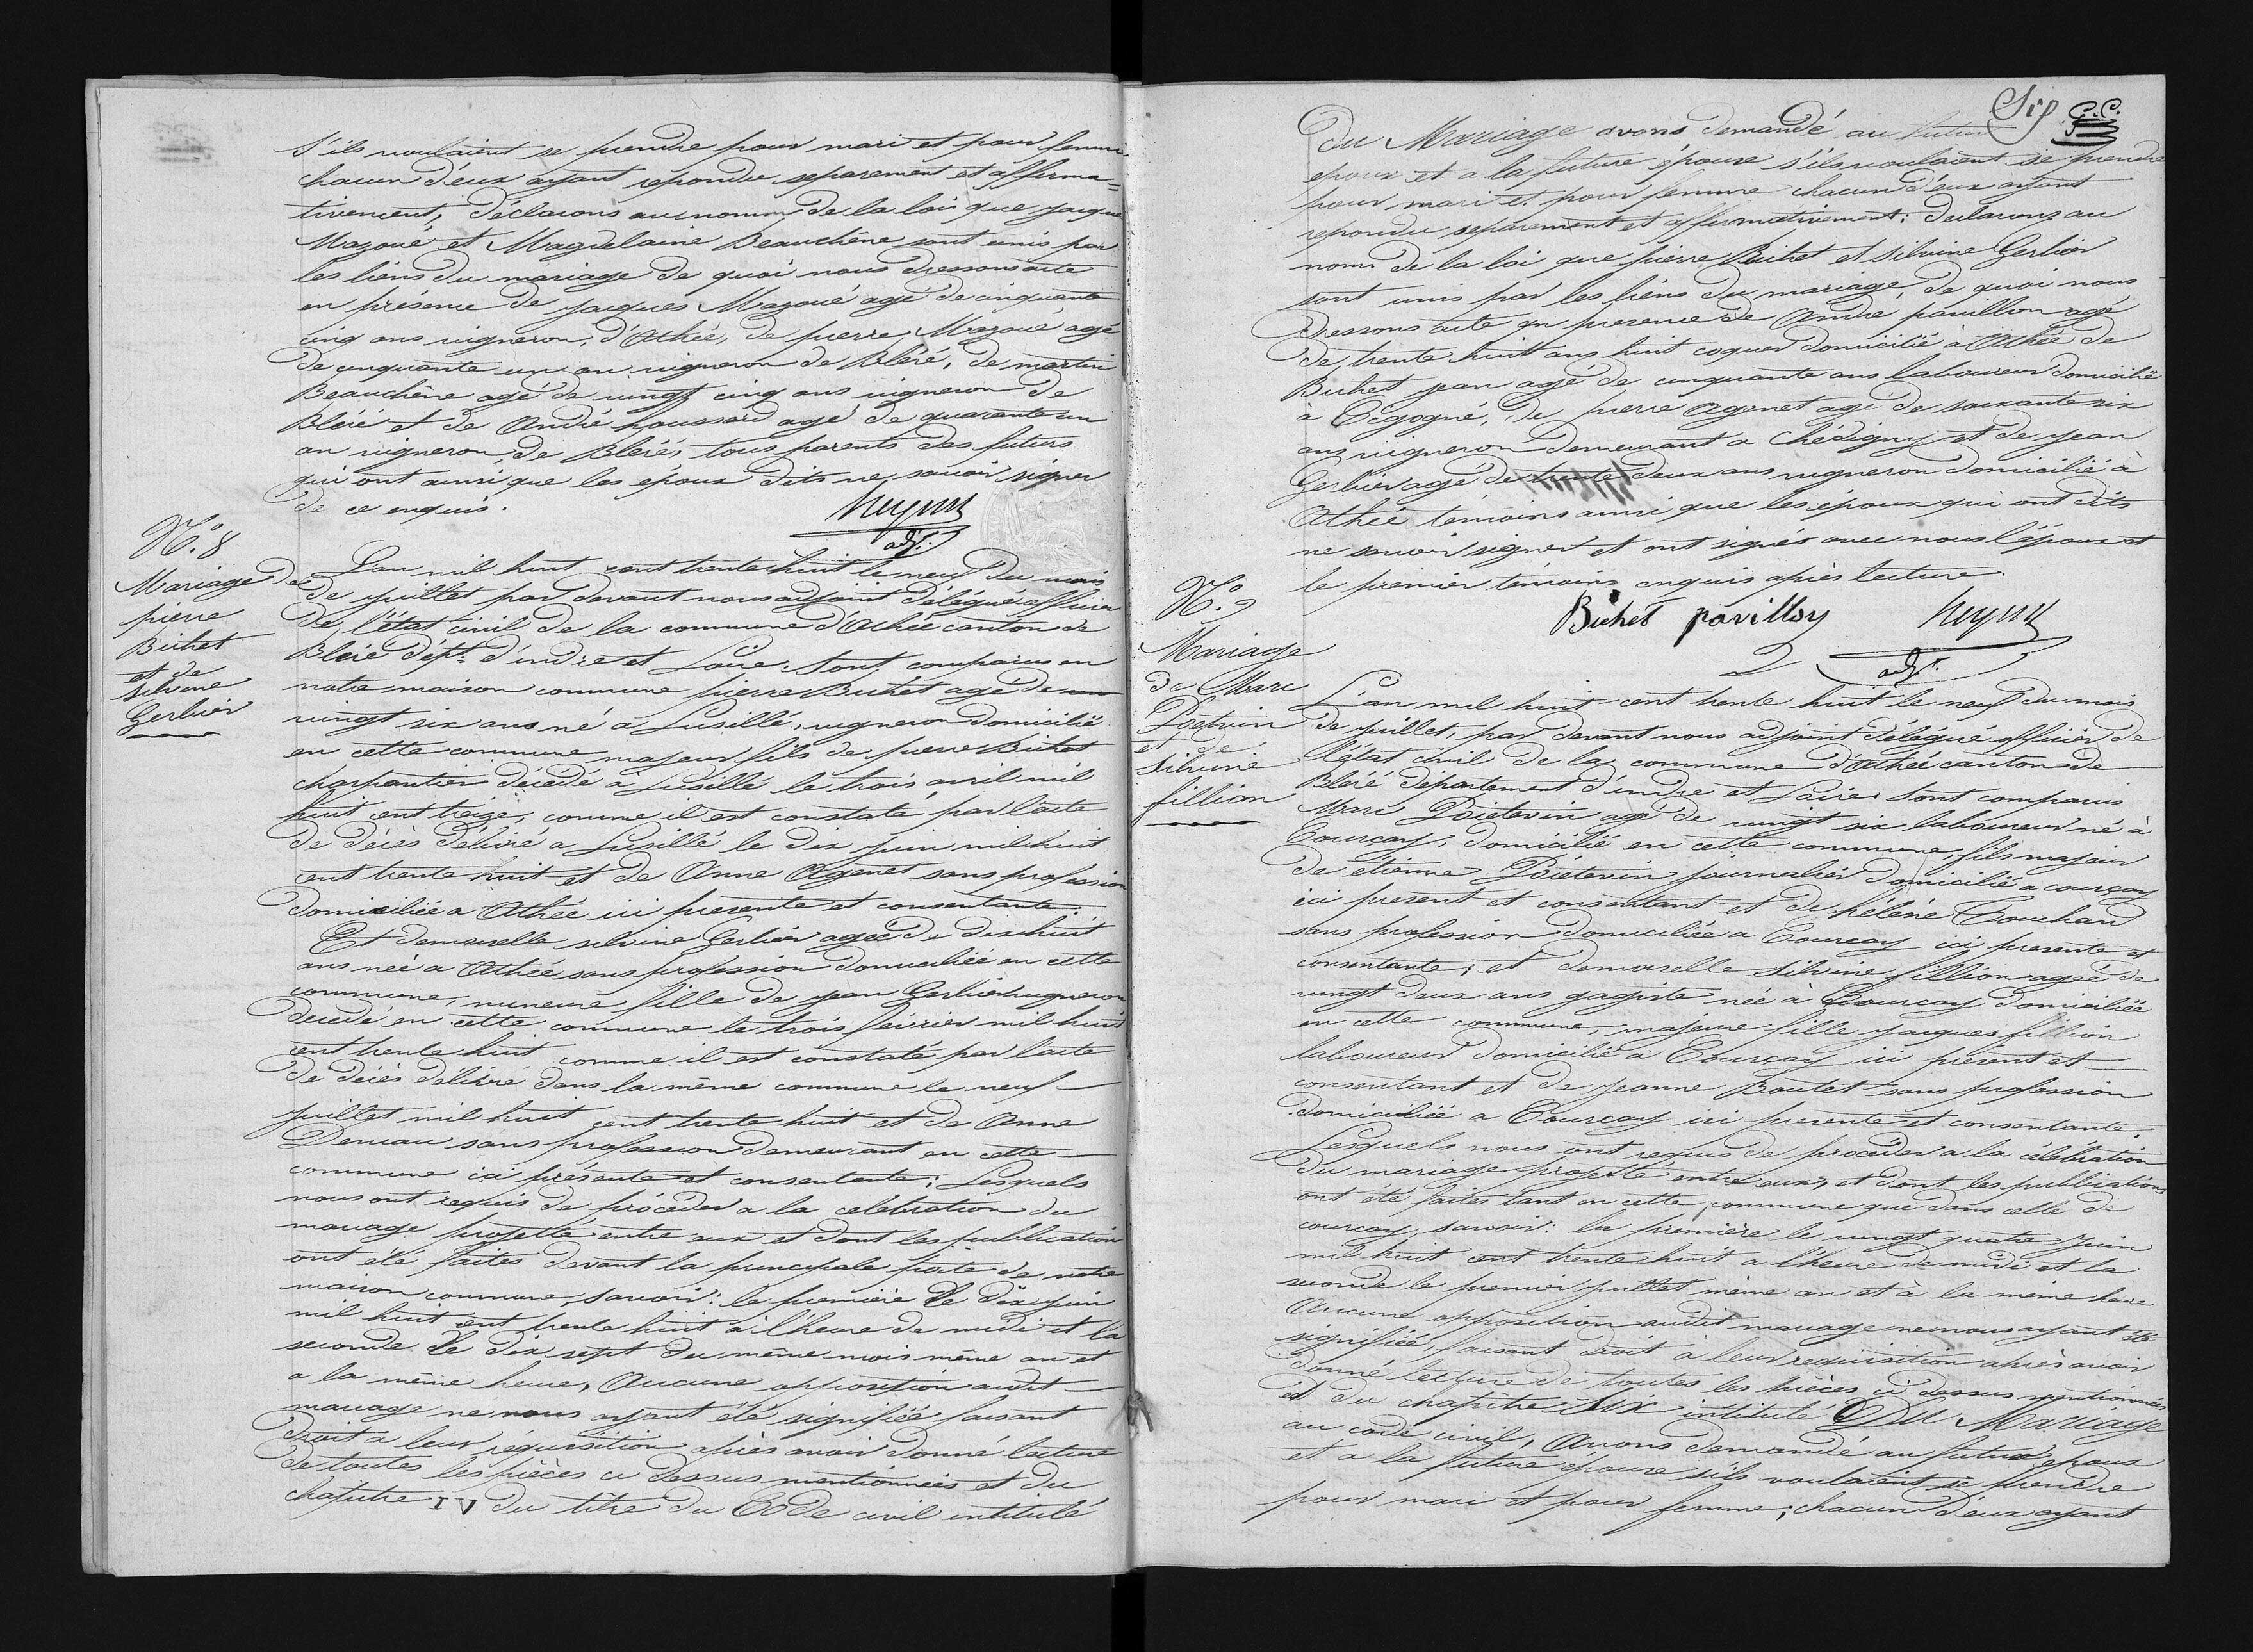 S'ils voulaient se prendre pour mari et pour femme
chacun d'eux ayant repondu separement et afferma=
tivement, déclarons au nom de la loi que jacque
Mazoué et Magdelaine Beauchêne sont unis par
les liens du mariage de quoi nous dressons acte
en présence de jacques Mazoué agé de cinquante
cinq ans vigneron, d'Athée, de pierre Mazoué agé
de cinquante un an vigneron de Bléré, de martin
Beauchêne agé de vingt cinq ans vigneron de
Bléré et de André houssard agé de quarante un
an vigneron, de Bléré, tous parents des futurs
qui ont ainsi que les époux dits ne savoir signer
de ce enquis.
adjt.
N°. 8
Mariage de
pierre
Bichet
et de
Silvine
Gerbier
L'an mil huit cent trente huit le neuf du mois
de juillet par devant nous adjoint délégué officier
de l'état civil de la commune d'Athée canton de
Bléré dépt. d'indre et Loire. Sont comparus en
notre maison commune pierre Bichet agé de
vingt six ans né à Lusillé, vigneron domicilié
en cette commune majeur fils de pierre Bichet
charpentier décédé à Lusillé le trois avril mil
huit cent treize, comme il est constaté par l'acte
de décès délivré a Lusillé le dix juin mil huit
cent trente huit et de Anne Agenet sans profession
domiciliée a Athée ici presente et consentante.
Et demoiselle silvine Gerbier agée de dix huit
ans née a Athée sans profession domiciliée en cette
commune, mineure fille de jean Gerbier vigneron
decedé en cette commune le trois fevrier mil huit
cent trente huit comme il est constaté par l'acte
de décès délivré dans la même commune le neuf
juillet mil huit cent trente huit et de Anne
Deniau sans profession demeurant en cette
commune ici présente et consentante; Lesquels
nous ont requis de procéder a la celebration du
mariage projetté entre eux et dont les publication
ont été faites devant la principale porte de notre
maison commune, savoir: la première le dix juin
mil huit cent trente huit à l'heure de midi et la
seconde le dix sept du même mois même an et
a la même heure, Aucune opposition audit
mariage ne nous ayant été signifiée faisant
droit a leur réquisition après avoir donné lecture
de toutes les pièces ci dessus mentionnées et du
chapitre IV du titre du Code civil intitulé
C.C.
du Mariage avons demandé au futur
epoux et a la future épouse s'ils voulaient se prendre
pour mari et pour femme chacun d'eux ayant
repondu separement et affirmativement: declarons au
nom de la loi que pierre Bichet et silvine Gerbier
sont unis par les liens du mariage de quoi nous
dressons acte en presence de André pavillon agé
de trente huit ans huit domicilié à Athée de
Bichet jean agé de cinquante ans laboureur domicilié
à Cigogné, de pierre Agenet agé de soixante six
ans vigneron demeurant a Chédigny et de jean
Gerbier agé de trente deux ans vigneron domicilié à
Athée témoins ainsi que les époux qui ont dits
ne savoir signer et ont signés avec nous l'époux et
le premier témoins enquis après lecture.
Bichet pavillon
adjt.
N°. 9
Mariage
de Marc
Poetvin
et de
Silvine
fillion
L'an mil huit cent trente huit le neuf du mois
de juillet, par devant nous adjoint délégué officier de
l'état civil de la commune d'Athée canton de
Bléré département d'indre et Loire. Sont comparus
Marc Poietevin agé de vingt six laboureur né à
Courçay, domicilié en cette commune, fils majeur
de étienne Poietevin journalier domicilié a courçay
ici present et consentant et de hélène Touchard
sans profession domiciliée a Courçay ici presente et
consentante; et demoiselle silvine fillion agée de
vingt deux ans gagiste née à Courçay domiciliée
en cette commune, majeure fille jacques fillion
laboureur domicilié a Courçay ici présent et
consentant et de jeanne Boutet sans profession
domiciliée a Courçay ici presente et consentante.
Lesquels nous ont requis de procéder a la célébration
du mariage projetté entre eux, et dont les publications
ont été faites tant en cette commune que dans celle de
courçay, savoir: la première le vingt quatre juin
mil huit cent trente huit a l'heure de midi et la
seconde le premier juillet même an et à la même heure
Aucune opposition audit mariage ne nous ayant été
signifiée, faisant droit à leur requisition après avoir
donné lecture de toutes les pièces ci dessus mentionnées
et du chapitre SIX intitulé DU Mariage
au code civil, Avons demandé au futur epoux
et a la future épouse s'ils voulaient se prendre
pour mari et pour femme; chacun d'eux ayant